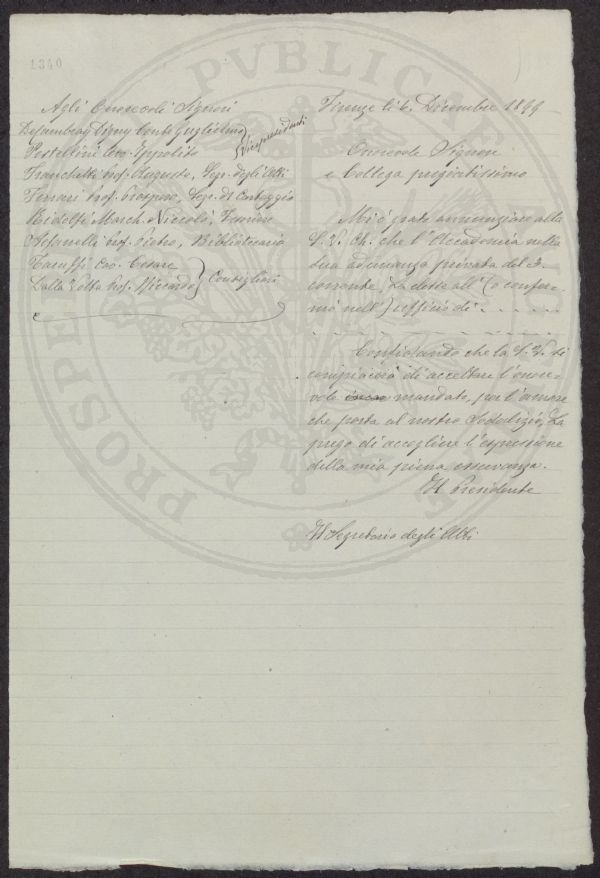 1340
Agli Onorevoli Signori
Digny Conte Guglielmo
Pestellini Ippolito
Vicepresidenti
Franchetti Prof. Augusto, Segr. degli Atti
Ferrari Prof. Prospero, Segr. di Carteggio
Ridolfi March. Niccolò,
Prof. Pietro, Bibliotecario
Cav. Cesare
Dalla Volta Prof. Riccardo
Consiglieri
Firenze li 6. Dicembre 1899
Onorevole Signore
e Collega pregiatissimo
Mi è grato annunziare alla
S. V. Ch. che l'Accademia nella
sua adunanza privata del 3.
corrente, La elesse all' (o confer-
mò nell') ufficio di . . . . .
. . . . . . . . . . . . . . . .
Confidando che la S. V. si
compiacerà di accettare l'onore-
vole mandato, per l'amore
che porta al nostro Sodalizio, La
prego di accogliere l'espressione
della mia piena osservanza.
Il Presidente
Il Segretario degli Atti
PROSPE
PVBLICA